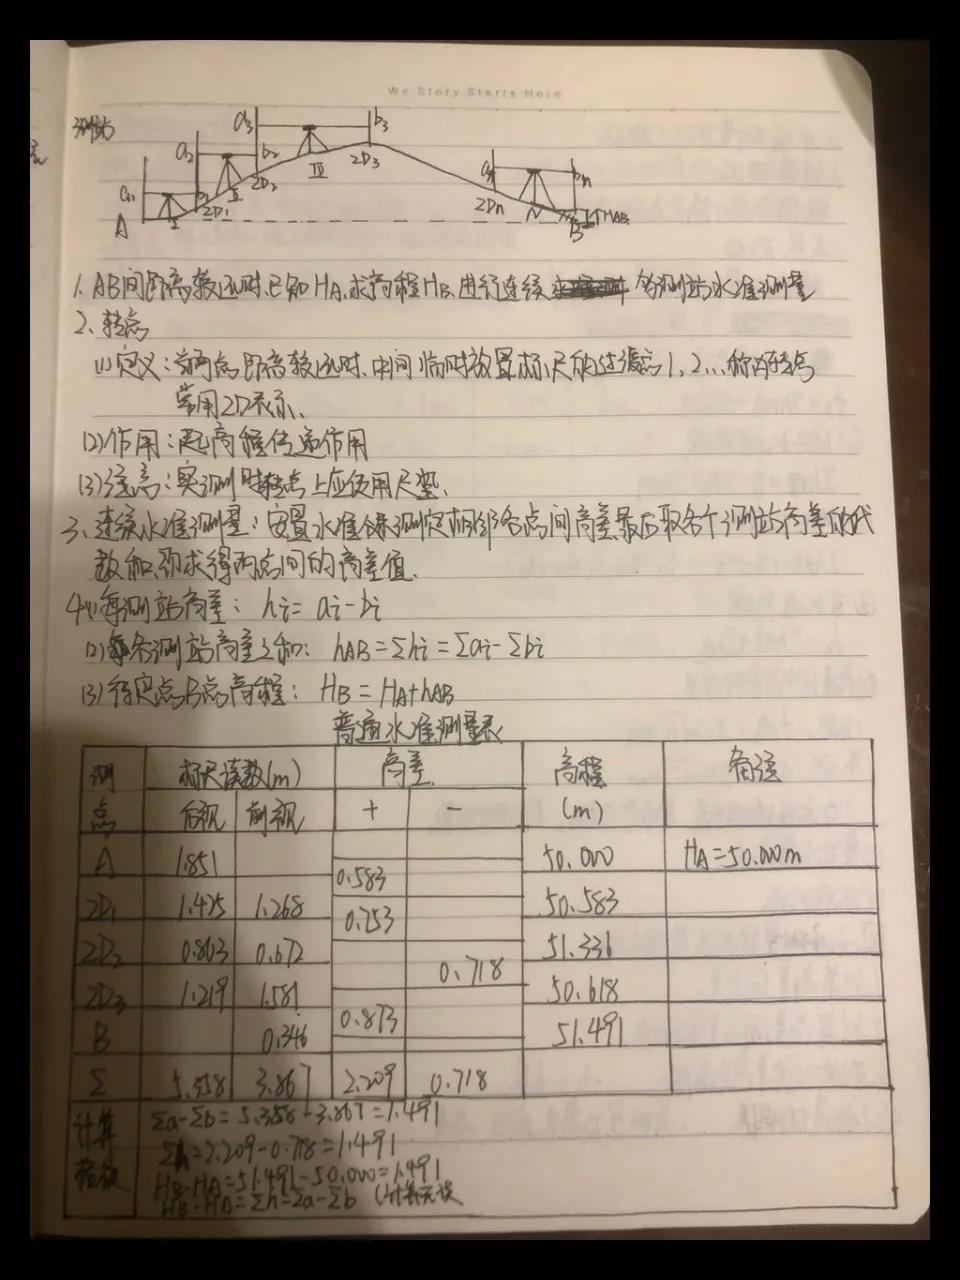 We Story Starts Here
测站
a1 b1 a2 b2 a3 b3 an bn
A I ZD1 II ZD2 III ZD3 ZDn N B hAB
1. AB间距离较远时,已知HA,求高程HB,进行连续 多测站水准测量
2、转点
(1)定义:当两点距离较远时,中间临时放置标尺的过渡点1,2…称为转点
常用ZD表示、
(2)作用:起高程传递作用
(3)注意:实测时转点上应使用尺垫.
3、连续水准测量:安置水准仪测定相邻各点间高差,最后取各个测站高差的代
数和,即求得两点间的高差值.
4(1)每测站高差: hi= ai-bi
(2)各测站高差之和: hAB=Σhi=Σai-Σbi
(3)待定点B点高程: HB=HA+hAB
普通水准测量表
测点 标尺读数(m) 高差 高程(m) 备注
后视 前视 + -
A 1.851 50.000 HA=50.000m
0.583
ZD1 1.425 1.268 50.583
0.753
ZD2 0.863 0.672 51.336
0.718
ZD3 1.219 1.581 50.618
0.873
B 0.346 51.491
Σ 5.358 3.867 2.209 0.718
计算检核
Σa-Σb=5.358-3.867=1.491
Σh=2.209-0.718=1.491
HB-HA=51.491-50.000=1.491
HB-HA=Σh=Σa-Σb (计算无误